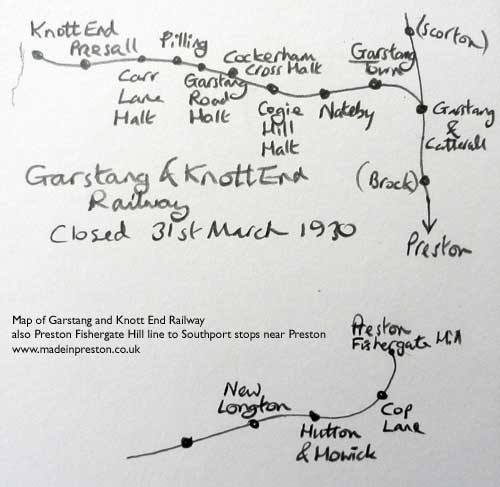 Knott End
Presall
Carr
Lane
Halt
Pilling
Garstang
Road
Halt
Cockerham
Cross Halt
Cogie
Hill
Halt
Nateby
Garstang
Town
(Scorton)
Garstang
&
Catterall
(Brock)
Preston
Garstang & Knott End
Railway
Closed 31st March 1930
Map of Garstang and Knott End Railway
also Preston Fishergate Hill line to Southport stops near Preston
www.madeinpreston.co.uk
Preston
Fishergate Hill
Cop
Lane
Hutton
& Howick
New
Longton